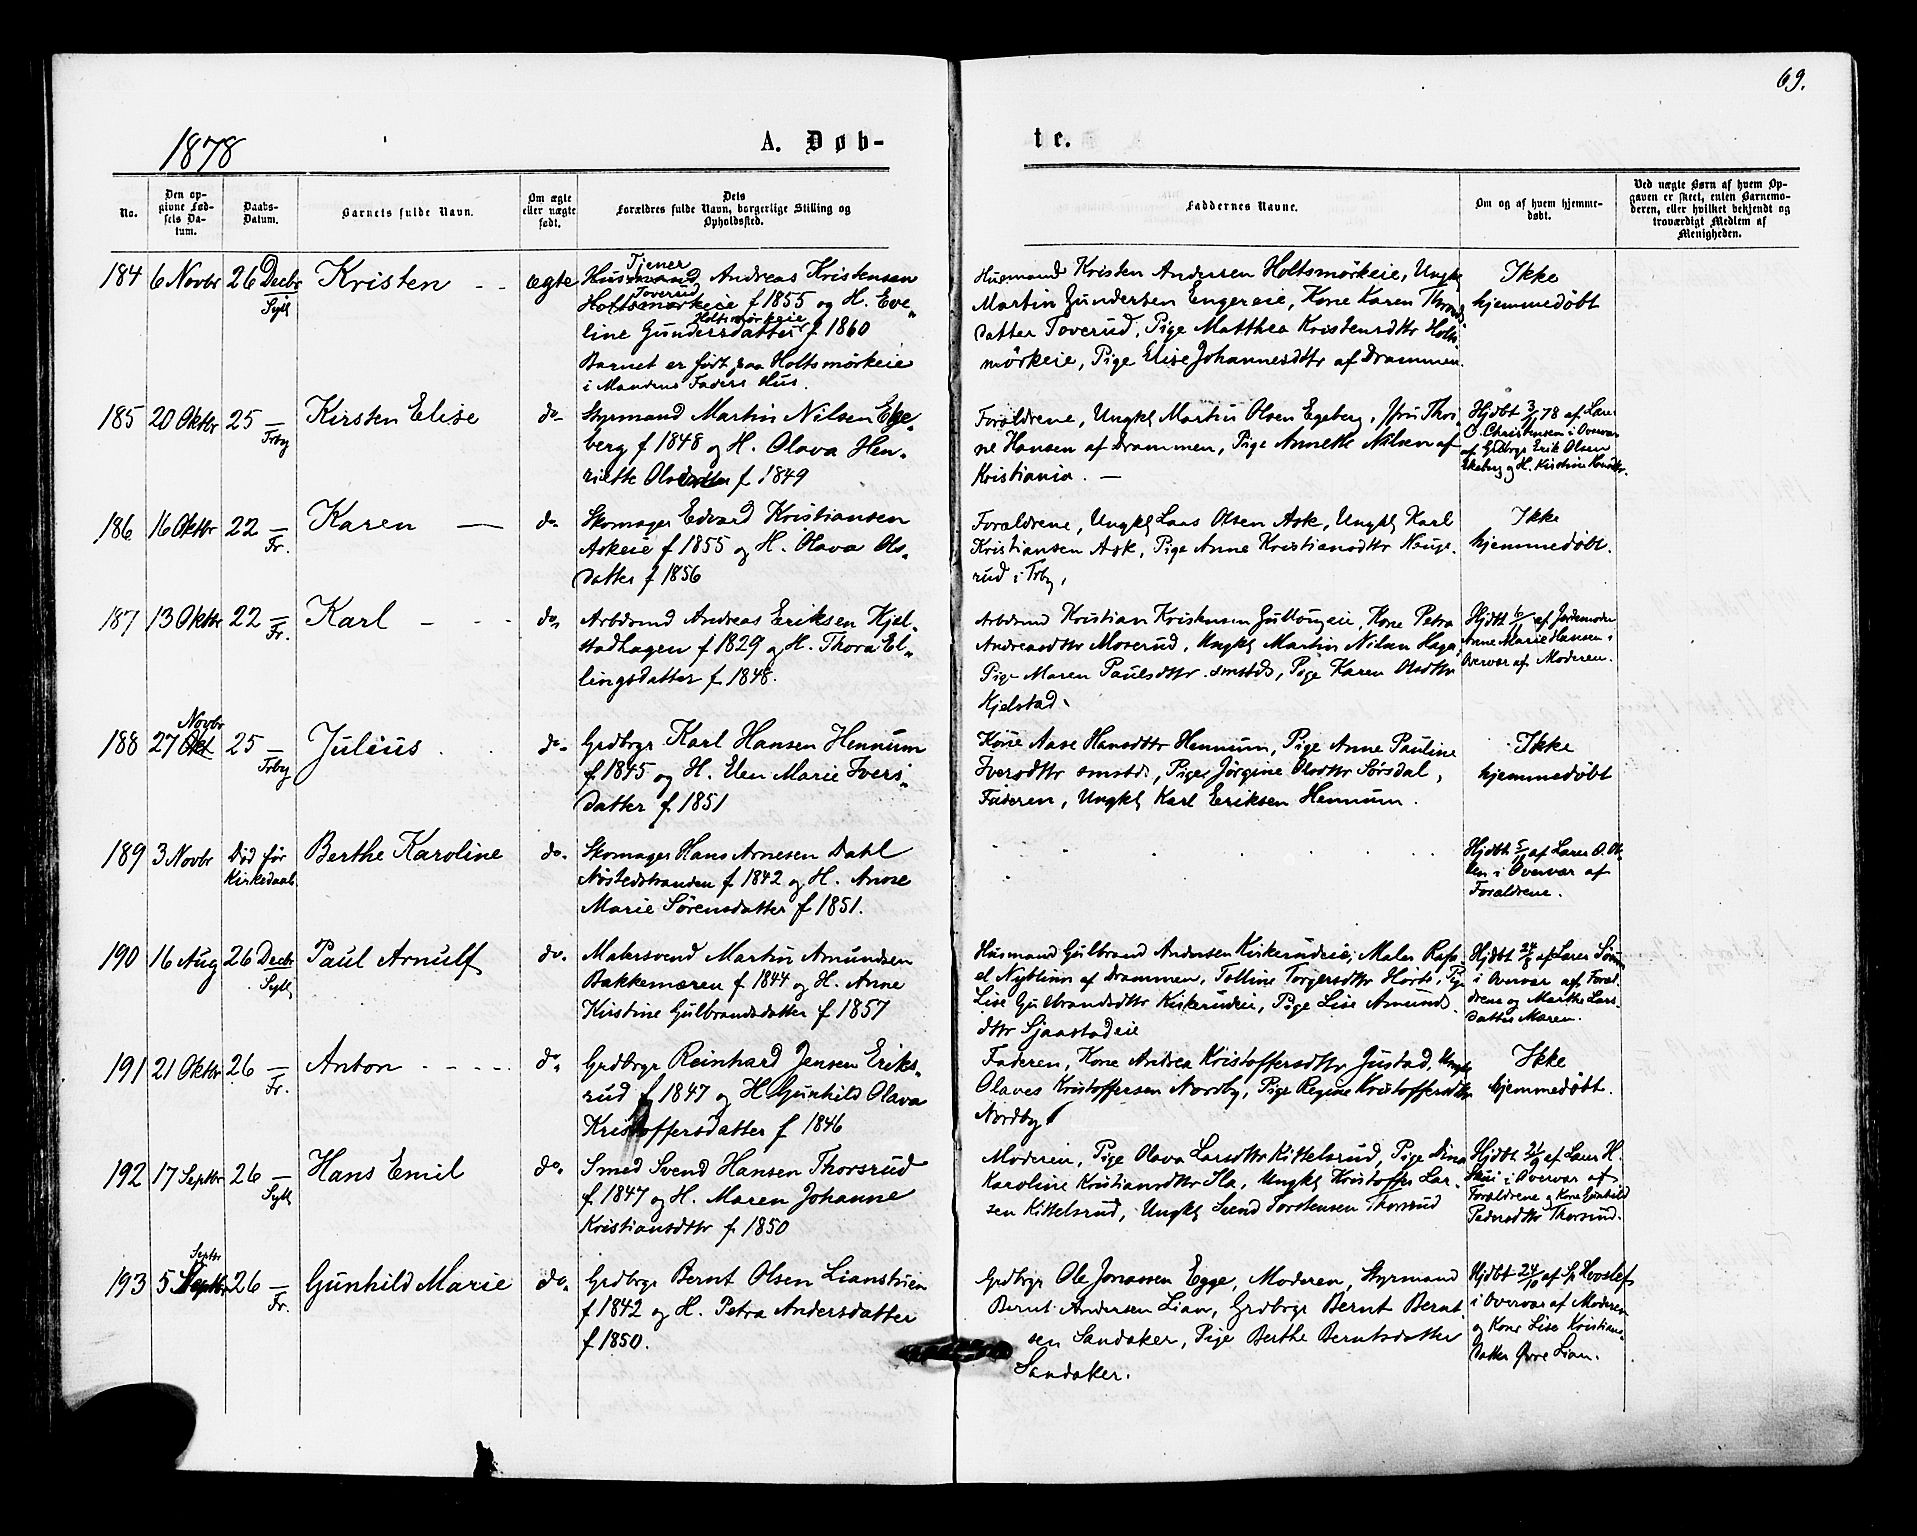 69.
1878
A. Døb-
te.
No.
Den op-
givne Fød-
sels Da-
tum.
Daabs-
Datum.
Barnets fulde Navn.
Om ægte
eller uægte
født.
Dets
Forældres fulde Navn, borgerlige Stilling og
Opholdssted.
Faddernes Navne.
Om og af hvem hjemme-
døbt.
Ved uægte Børn af hvem Op-
gaven er skeet, enten Barnemo-
deren, eller hvilket bekjendt og
troværdigt Medlem af
Menigheden.
184 6 Novbr 26 Decbr Syll Kristen - - ægte
Tjener
Husmand Andreas Kristensen
Toverud
Holtsmørkeie f 1855 og H. Eve-
Holtsmørkeie
line Gundersdatter f 1860
Barnet er født paa Holtsmørkeie
i Mandens Faders Hus.
Husmand Kristen Andersen Holtsmørkeie, Ungk
Martin Gundersen Engereie, Kone Karen
datter Toverud, Pige Matthea Kristensdttr Holts
mørkeie, Pige Elise Johannesdttr af Drammen
Ikke
hjemmedøbt
185 20 Oktbr 25 — Frby Kirsten Elise do-
Styrmand Martin Nilsen Ege-
berg f 1848 og H. Olava Hen-
riette Olsdatter f 1849
Forældrene, Ungkl Martin Olsen Egeberg, Fru Thri-
ne Hansen af Drammen, Pige Annette Nilsen af
Kristiania. —
Hjdbt 3/11 78 af Lars
O. Christensen i Overvær
af Grdbrgr Erik Olsen
Ekeberg og H. Kirstine
186 16 Oktbr 22 — Fr. Karen — do-
Skomager Edvard Kristiansen
Askeie f 1855 og H. Olava Ols-
datter f 1856
Forældrene, Ungkl Lars Olsen Ask, Ungkl Karl
Kristiansen Ask, Pige Anne Kristiansdttr Hauge-
rud i Frby,
Ikke
hjemmedøbt.
187 13 Oktbr 22 — Fr. Karl - - - do,
Arbdsmd Andreas Eriksen Kjel-
stadhagen f 1829 og H. Thora El-
lingsdatter f 1848.
Arbdsmd Kristian Kristensen Gullaugeie, Kone Petra
Andreasdttr Moserud, Ungkl Martin Nilsen Haga,
Pige Maren Paulsdttr smstds, Pige Karen Olsdttr
Kjelstad.
Hjdbt 6/11 af Jordemoder
Anne Marie Hansen i
Overvær af Moderen.
188 27 Okt Novbr 25 — Frby Julius. do-
Grdbrgr Karl Hansen Hennum
f. 1845 og H. Elen Marie Ivers-
datter f. 1851
Kone Aase Hansdttr Hennum, Pige Anne Pauline
Iversdttr smstds, Pige Jørgine Olsdttr Sørsdal,
Faderen, Ungkl Karl Eriksen Hennum.
Ikke
hjemmedøbt
189 3 Novbr Død før Kirkedaab Berthe Karoline do-
Skomager Hans Arnesen Dahl
Nøstedstranden f 1842 og H. Anne
Marie Sørensdatter f 1851.
Hjdbt 5/11 af Lærer O. Ol-
sen i Overvær af
Forældrene.
190 16 Aug 26 Decbr Syll Paul Arnulf do.
Malersvend Martin Amundsen
Bakkemæren f 1844 og H. Anne
Kirstine Gulbrandsdatter f 1857
Husmand Gulbrand Andersen Kirkerudeie, Maler Rafa-
el Nyblinn af Drammen, Talline Torgersdttr Horte, Pige
Lise Gulbrandsdttr Kirkerudeie, Pige Lise Amunds
dttr Sjaastadeie
Hjdbt 24/8 af Lærer
i Overvær af Foræl-
drene og Marthe Lars-
datter Mæren.
191 21 Oktbr 26 — Fr. Anton - - - - do-
Grdbrgr Reinhard Jensen Eriks-
rud f 1847 og H Gunhild Olava
Kristoffersdatter f 1846
Faderen, Kone Andrea Kristoffersdttr Justad, Ungkl
Olaves Kristoffersen Nordby, Pige Regine Kristoffersdttr
Nordby
Ikke
hjemmedøbt.
192 17 Septbr 26 — Syll Hans Emil do.
Smed Svend Hansen Thorsrud
f. 1847 og H. Maren Johanne
Kristiansdttr f 1850
Moderen, Pige Olava Larsdttr Kittelsrud, Pige Dina
Karoline Kristiansdttr Ila, Ungkl Kristoffer Lar-
sen Kittelsrud, Ungkl Svend Torstensen Thorsrud
Hjdbt af Lærer H.
Skui i Overvær af
Forældrene og Kone Gunhild
Pedersdttr Thorsrud.
193 5 Septbr Septbr 26 — Fr. Gunhild Marie do.
Grdbrgr Bernt Olsen Lianstrien
f 1842 og H. Petra Andersdatter
f 1850.
Grdbrgr Ole Jonassen Egge, Moderen, Styrmand
Bernt Andersen Lian, Grdbrgr Bernt Bernt-
sen Sandaker, Pige Berthe Berntsdatter
Sandaker.
Hjdbt 24/10 af Sp Hvoslef
i Overvær af Moderen
og Kone Lise Kristians-
datter Øvre Lian.